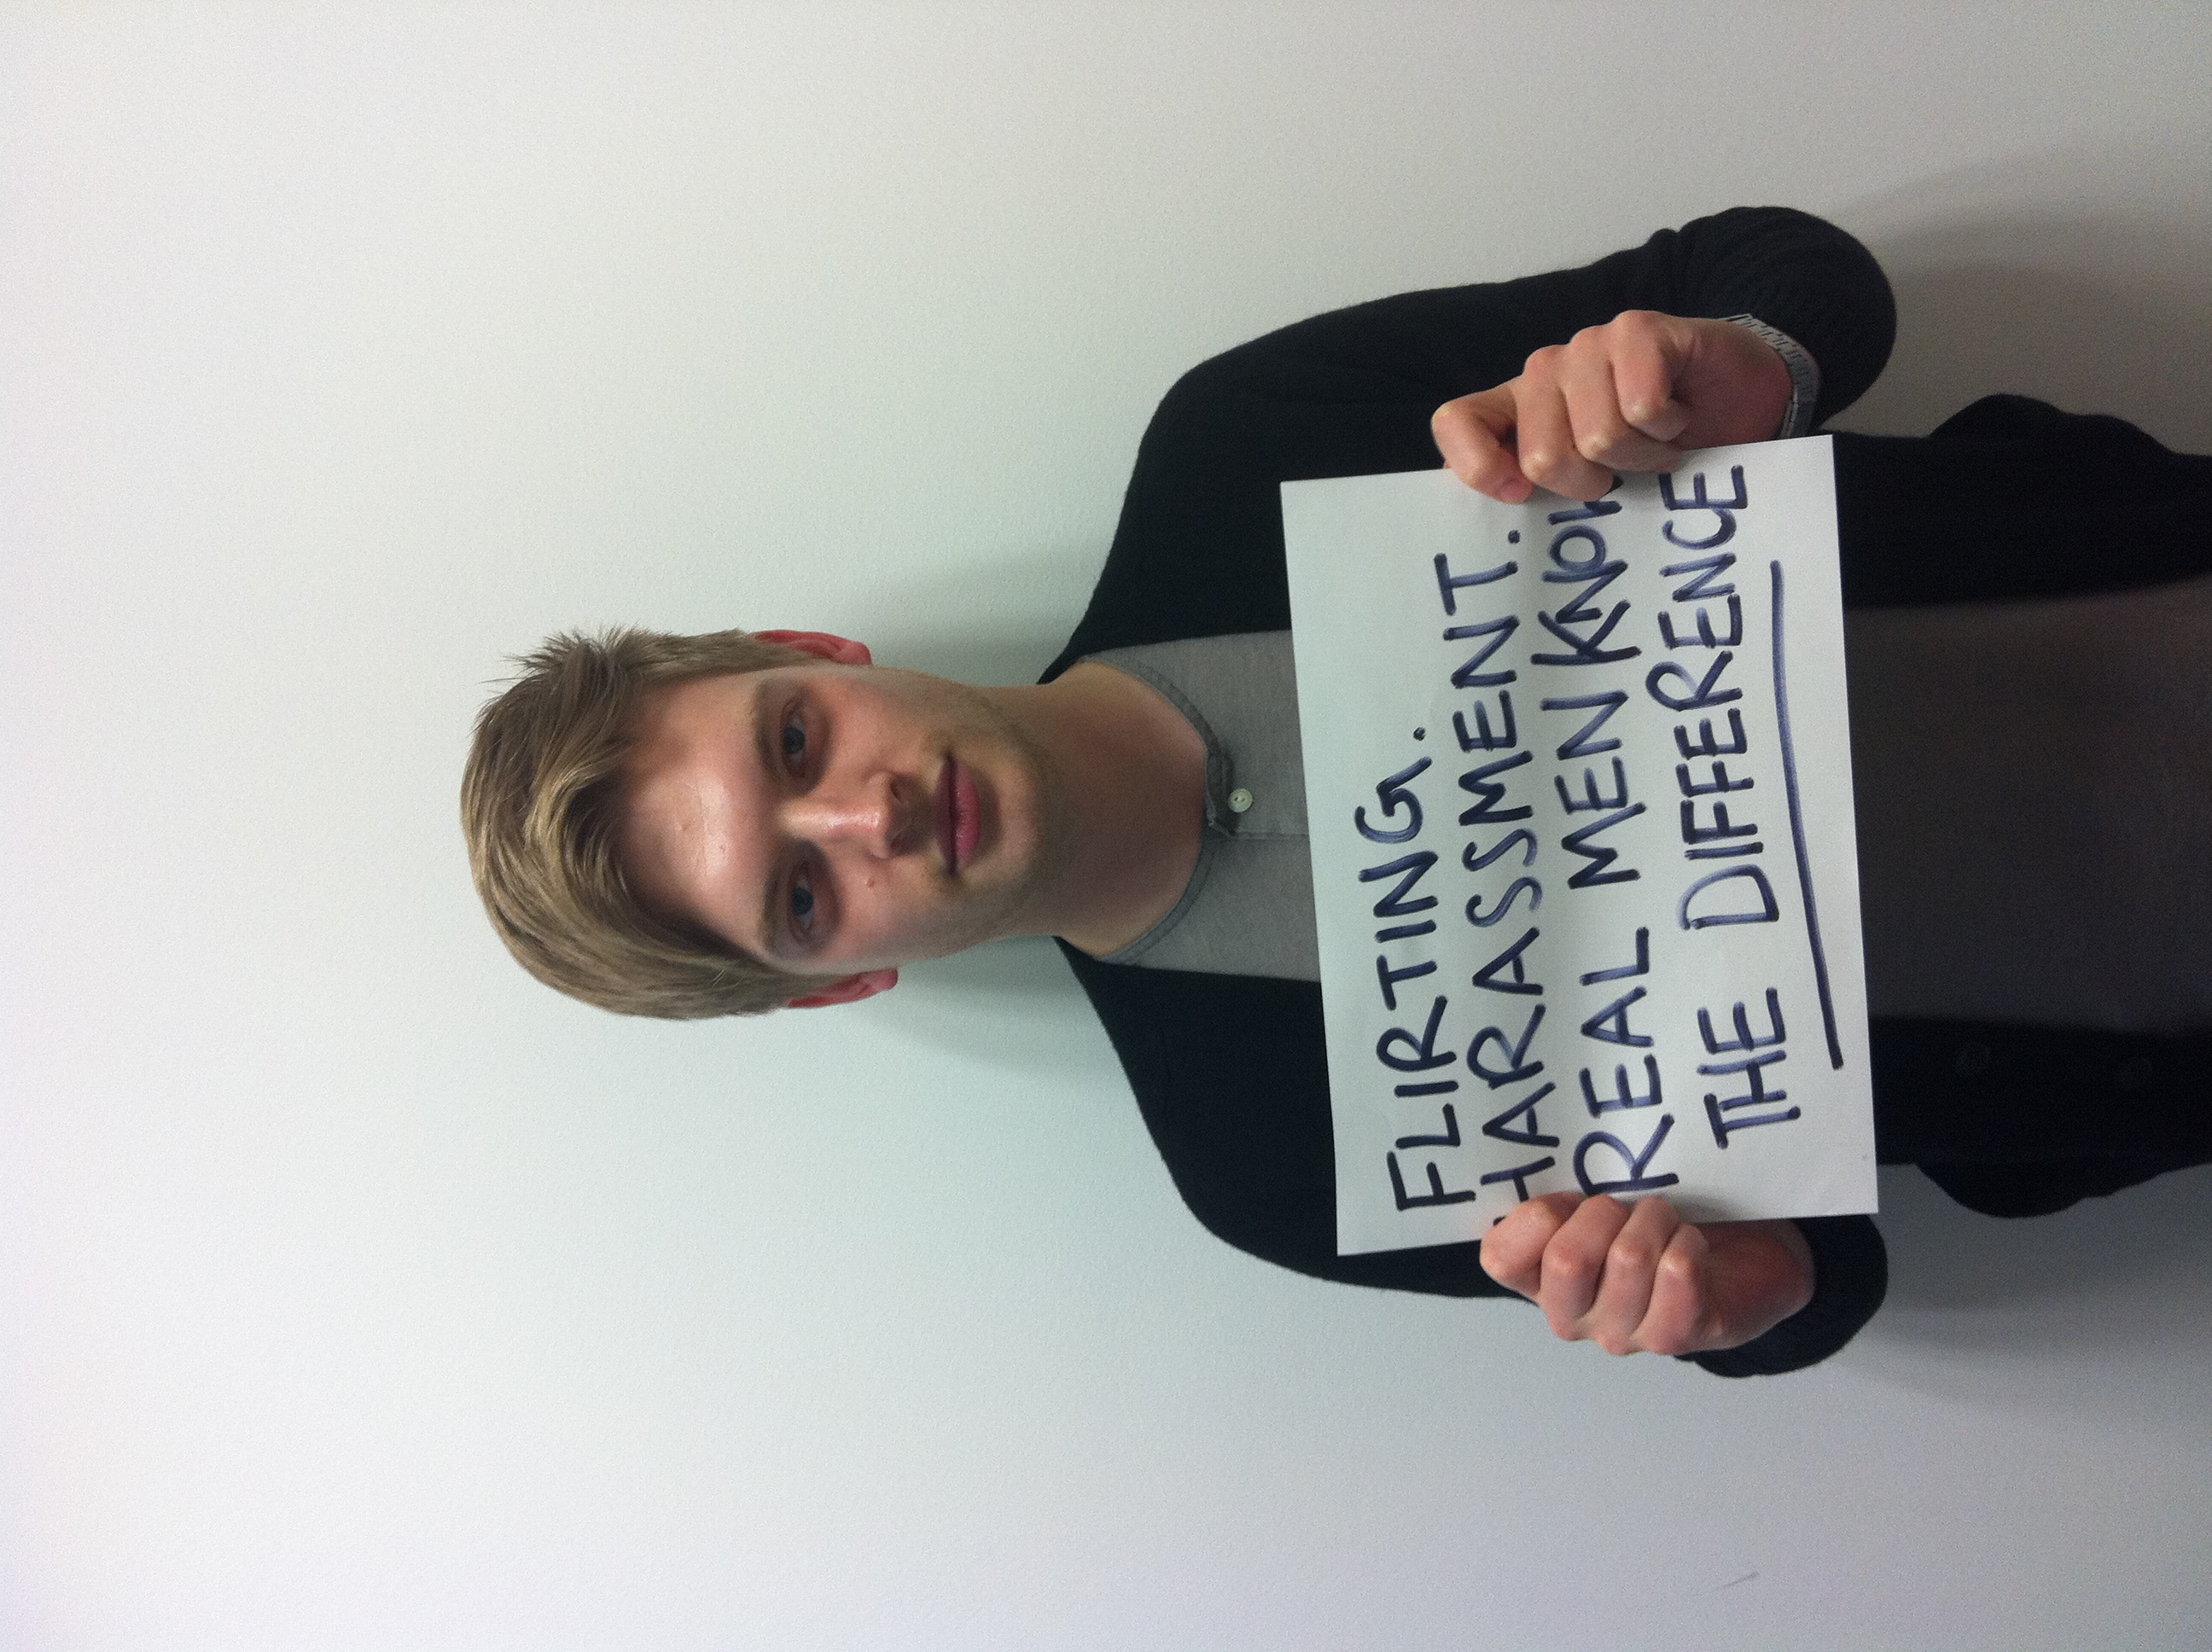 FLIRTING.
HARASSMENT.
REAL MEN KNOW
THE DIFFERENCE